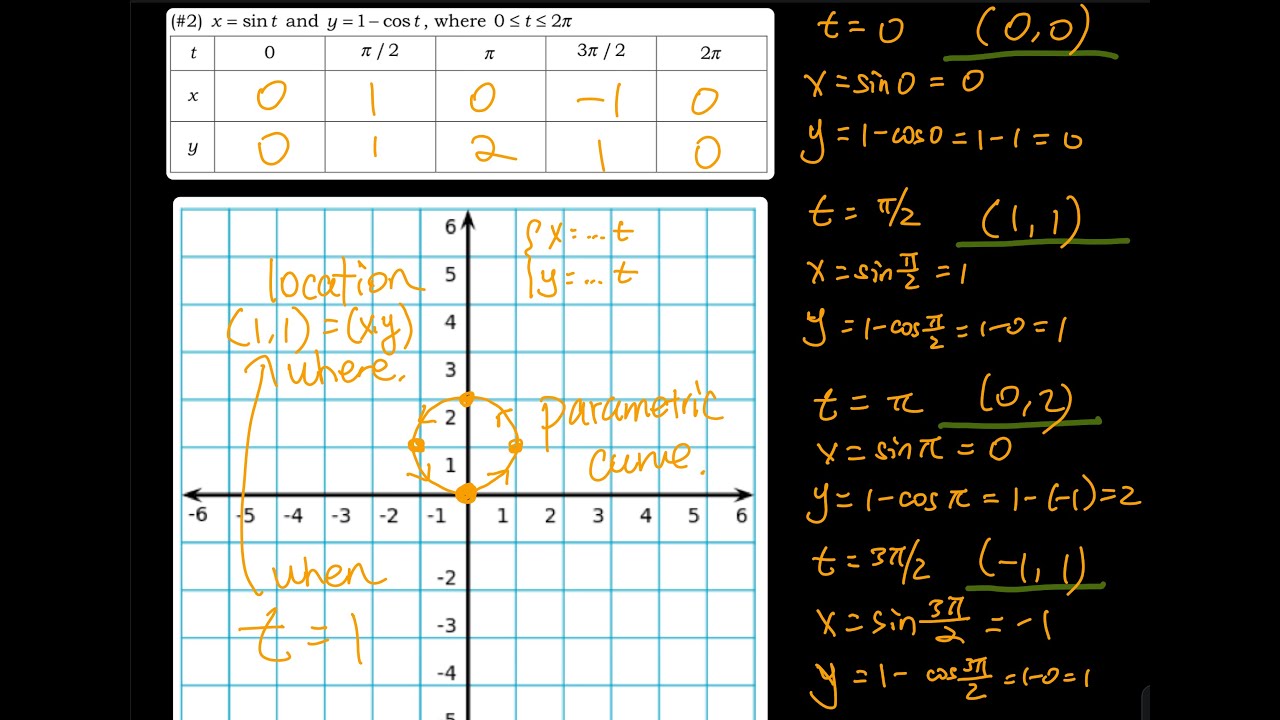 (#2) x = sin t and y = 1 – cos t, where 0 ≤ t ≤ 2π
t 0 π / 2 π 3π / 2 2π
x 0 1 0 -1 0
y 0 1 2 1 0
6
5
4
3
2
1
-6 -5 -4 -3 -2 -1 1 2 3 4 5 6
-2
-3
-4
5
{ x = ... t
y = ... t
location
(1, 1) = (x, y)
where.
parametric
curve.
when
t = 1
t = 0 (0, 0)
x = sin 0 = 0
y = 1 - cos 0 = 1 - 1 = 0
t = π/2 (1, 1)
x = sin π/2 = 1
y = 1 - cos π/2 = 1 - 0 = 1
t = π (0, 2)
x = sin π = 0
y = 1 - cos π = 1 - (-1) = 2
t = 3π/2 (-1, 1)
x = sin 3π/2 = -1
y = 1 - cos 3π/2 = 1 - 0 = 1